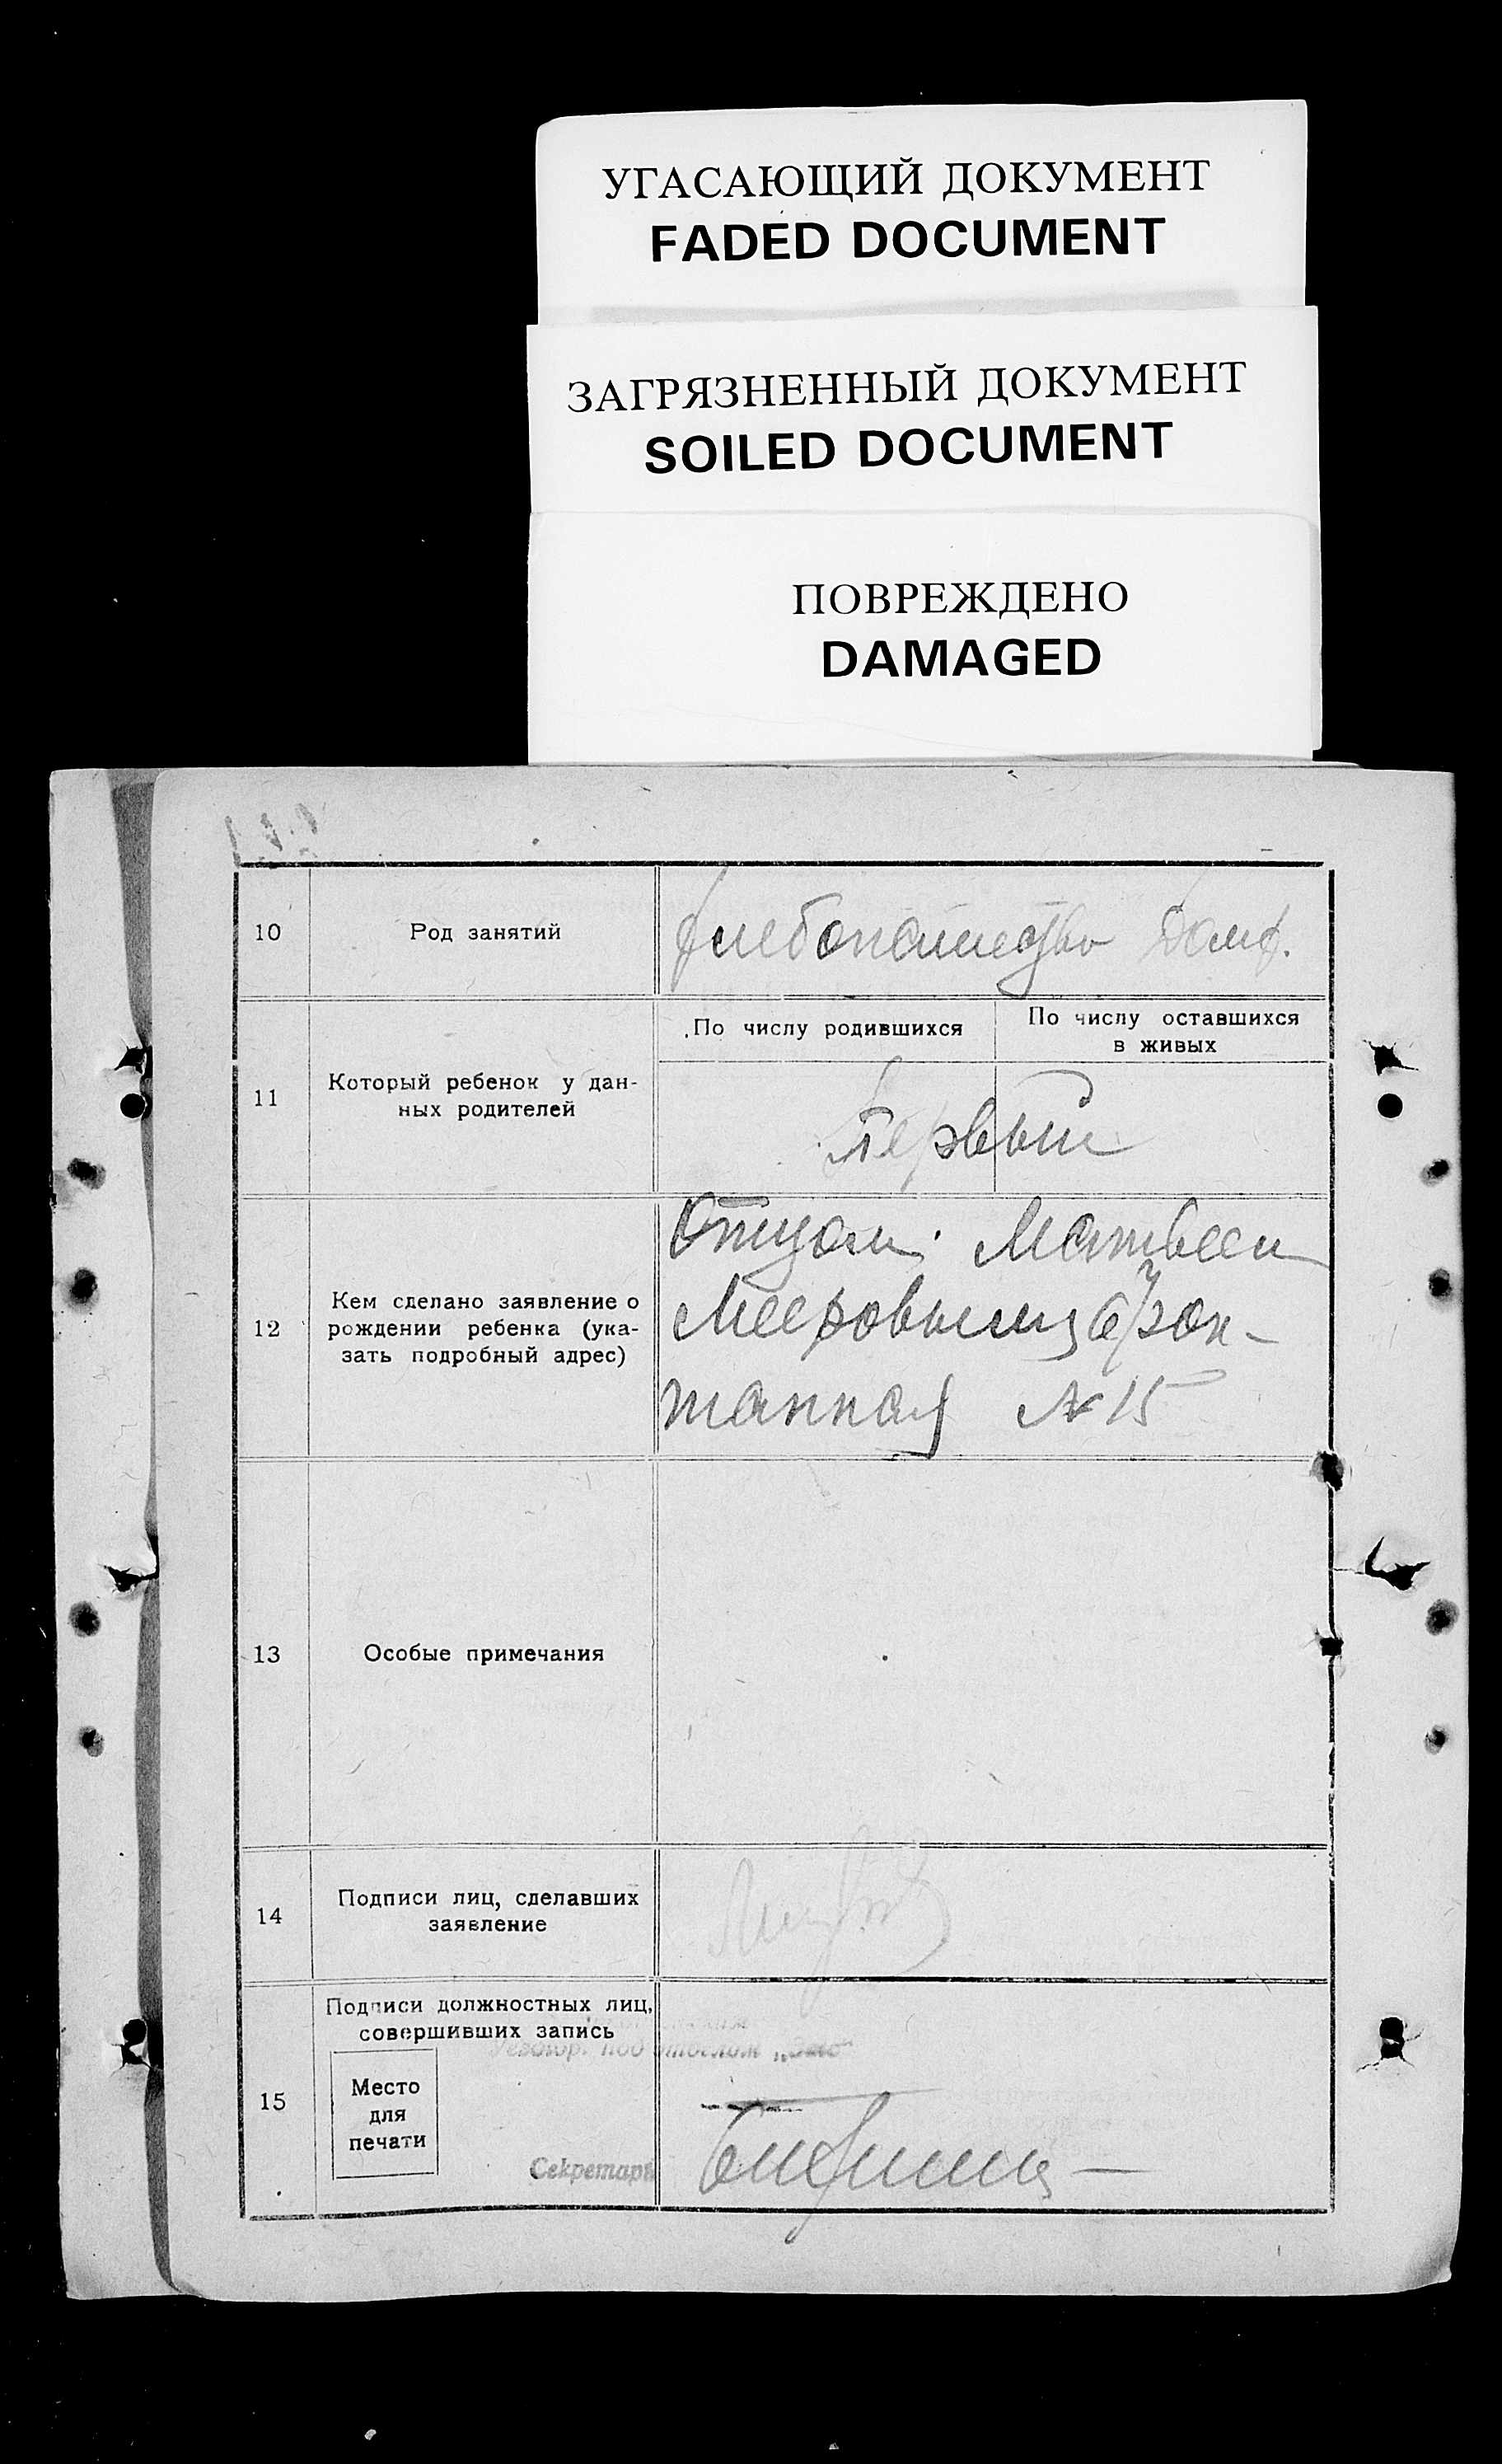 УГАСАЮЩИЙ ДОКУМЕНТ
FADED DOCUMENT
ЗАГРЯЗНЕННЫЙ ДОКУМЕНТ
SOILED DOCUMENT
ПОВРЕЖДЕНО
DAMAGED
10
Род занятий
хлебопашество
11
Который ребенок у дан-
ных родителей
По числу родившихся
По числу оставшихся
в живых
Первый
12
Кем сделано заявление о
рождении ребенка (ука-
зать подробный адрес)
Отцом: Матвеем
Мееровым
танная № 15
13
Особые примечания
14
Подписи лиц, сделавших
заявление
15
Подписи должностных лиц,
совершивших запись
Место
для
печати
Секретарь